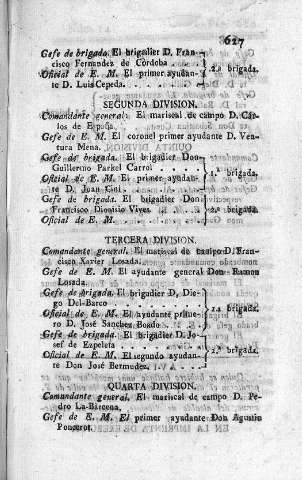 627
Gefe de brigada. El brigadier D. Fran-
cisco Fernandez de Córdoba
Oficial de E. M. El primer ayudan-
te D. Luis Cepeda.
2.a brigada.
SEGUNDA DIVISION.
Comandante general: El mariscal de campo D. Cár-
los de España.
Gefe de E. M. El coronel primer ayudante D. Ven-
tura Mena.
Gefe de brigada. El brigadier Don
Guillermo Parkel Carrol
Oficial de E. M. El primer ayudan-
te D. Juan Gini.
1.a brigada.
Gefe de brigada. El brigadier Don
Francisco Dionisio Vives
Oficial de E. M.
2.a brigada.
TERCERA DIVISION.
Comandante general. El mariscal de campo D. Fran-
cisco Xavier Losada.
Gefe de E. M. El ayudante general Don Ramon
Losada.
Gefe de brigada. El brigadier D. Die-
go Del-Barco
Oficial de E. M. El ayudante prime-
ro D. José Sanchez Boado
1.a brigada.
Gefe de brigada. El brigadier D. Jo-
sef de Ezpeleta
Oficial de E. M. El segundo ayudan-
te Don José Bermudez.
2.a brigada.
QUARTA DIVISION.
Comandante general. El mariscal de campo D. Pe-
dro La-Bárcena.
Gefe de E. M. El primer ayudante Don Agustin